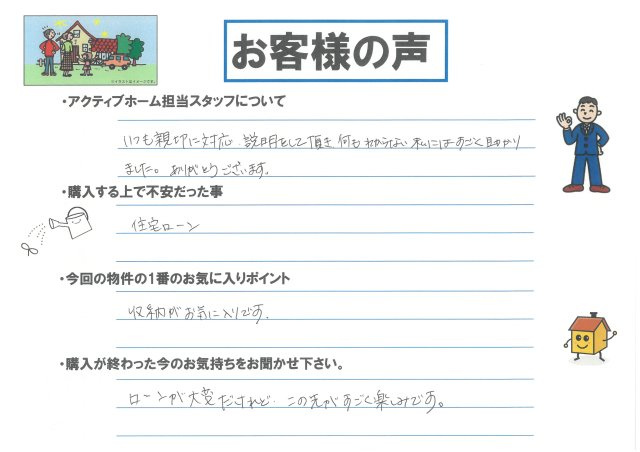 お客様の声
※イラストはイメージです。
・アクティブホーム担当スタッフについて
いつも親切に対応、説明をして頂き、何もわからない私にはすごく助かり
ました。ありがとうございます。
・購入する上で不安だった事
住宅ローン
・今回の物件の1番のお気に入りポイント
収納がお気に入りです。
・購入が終わった今のお気持ちをお聞かせ下さい。
ローンが大変だけれど、この先がすごく楽しみです。